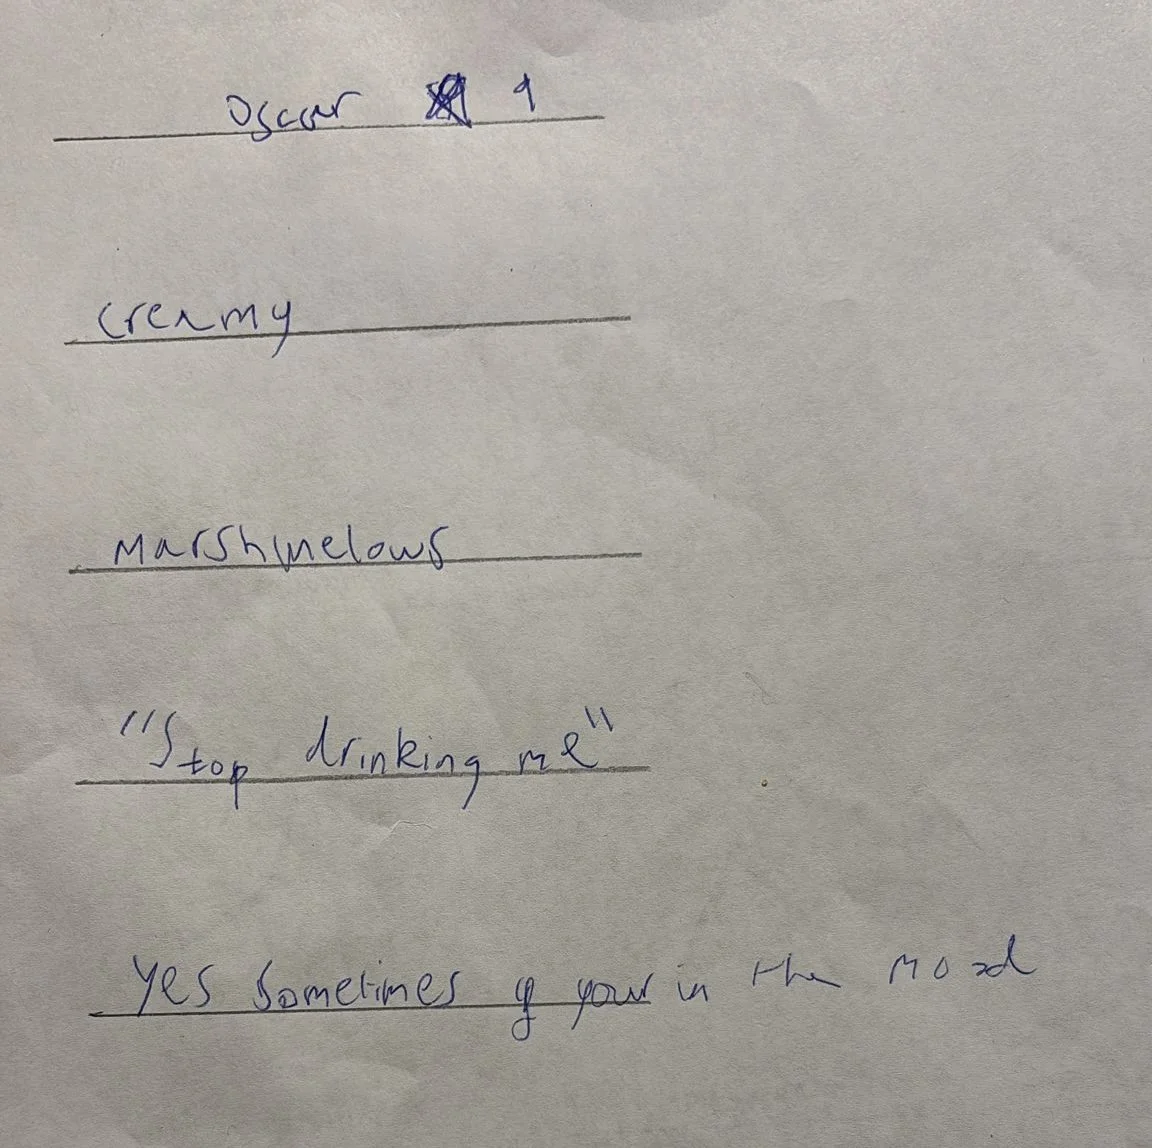 Oscar 9
creamy
Marshmelows
"Stop drinking me"
yes sometimes if your in the mood